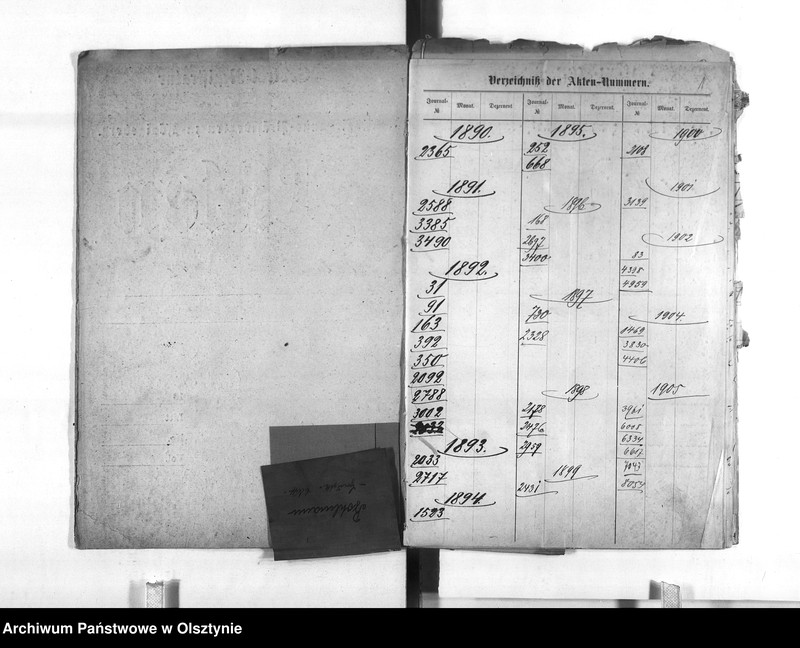 Verzeichniß der Akten-Nummern.
1
Journal-№ Monat. Dezernent. Journal-№ Monat. Dezernent. Journal-№ Monat. Dezernent.
1890.
2365
1891.
2588
3385
3490
1892.
31
91
163
392
350
2092
2788
3002
1893.
2033
2717
1894.
1523
1895.
252
668
1896
168
2697
3400
1897
730
2328
1898
2178
2476
2959
1899
2431
1900
2108
1901.
3139
1902
83
4395
4959
1904.
1469
3830
4406
1905
3961
6008
6334
6617
7047
8054
Archiwum Państwowe w Olsztynie